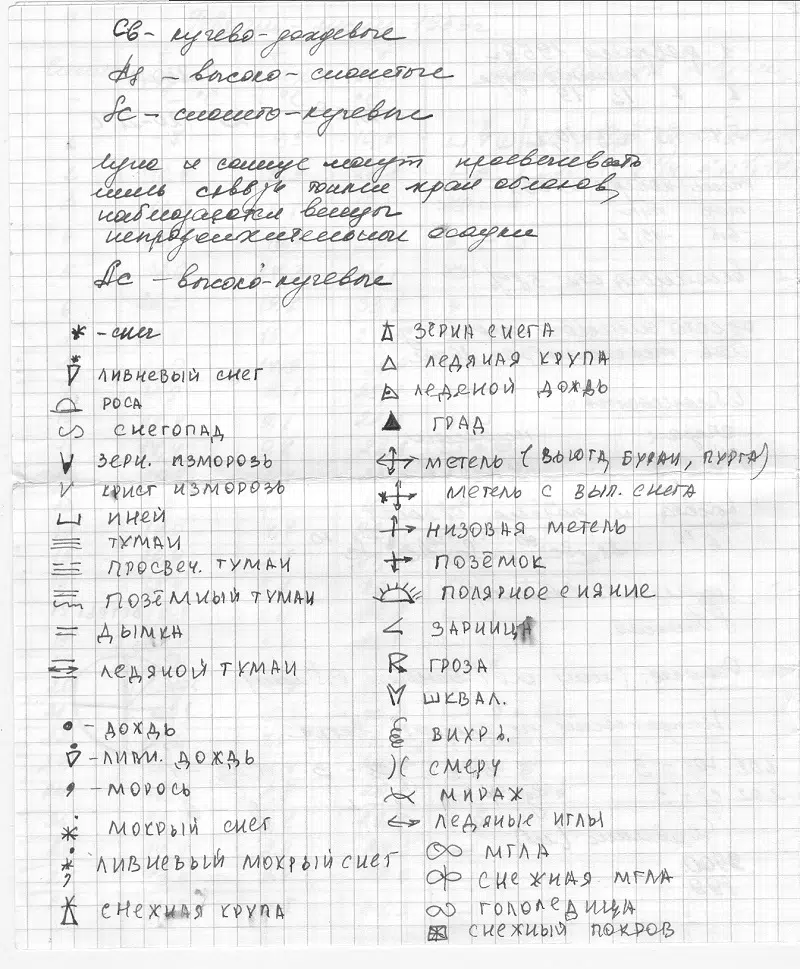 Cb - кучево-дождевые
As - высоко-слоистые
Sc - слоисто-кучевые
Луна и солнце могут просвечивать
лишь сквозь тонкие края облаков,
наблюдаются венцы
непродолжительные осадки
Ac - высоко-кучевые
* - снег
ливневый снег
роса
снегопад
зерн. изморозь
крист изморозь
иней
туман
просвеч. туман
позёмный туман
дымка
ледяной туман
- дождь
- ливн. дождь
- морось
мокрый снег
ливневый мокрый снег
снежная крупа
зёрна снега
ледяная крупа
ледяной дождь
град
метель (вьюга, буран, пурга)
метель с вып. снега
низовая метель
позёмок
полярное сияние
зарница
гроза
шквал.
вихрь.
смерч
мираж
ледяные иглы
мгла
снежная мгла
гололедица
снежный покров